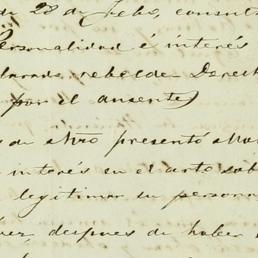 de 28 de Febo, consent
Personalidad é interés
larado rebelde. Derech
por el ausente)
de presentó
interés en el acto sob
legitimar su persona
despues de haber